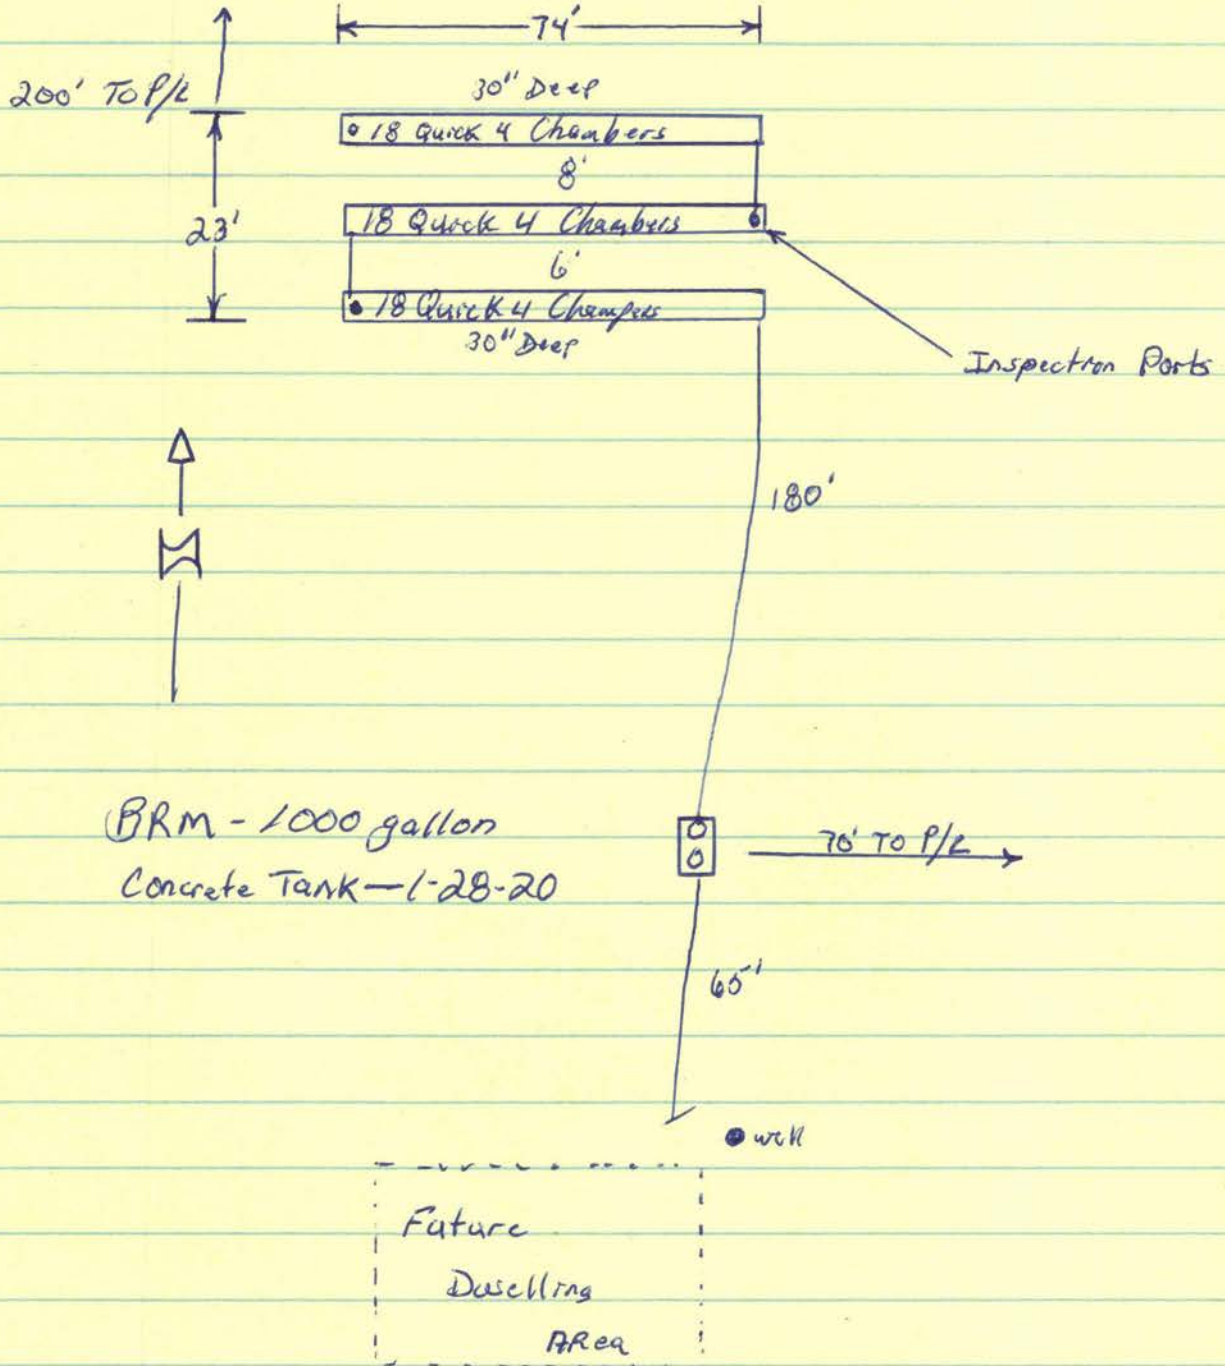 74'
200' TO P/L
30" Deep
18 Quick 4 Chambers
8'
23'
18 Quick 4 Chambers
6'
18 Quick 4 Chambers
30" Deep
Inspection Ports
180'
N
BRM - 1000 gallon
70' TO P/L
Concrete Tank — 1-28-20
65'
well
Future
Dwelling
Area